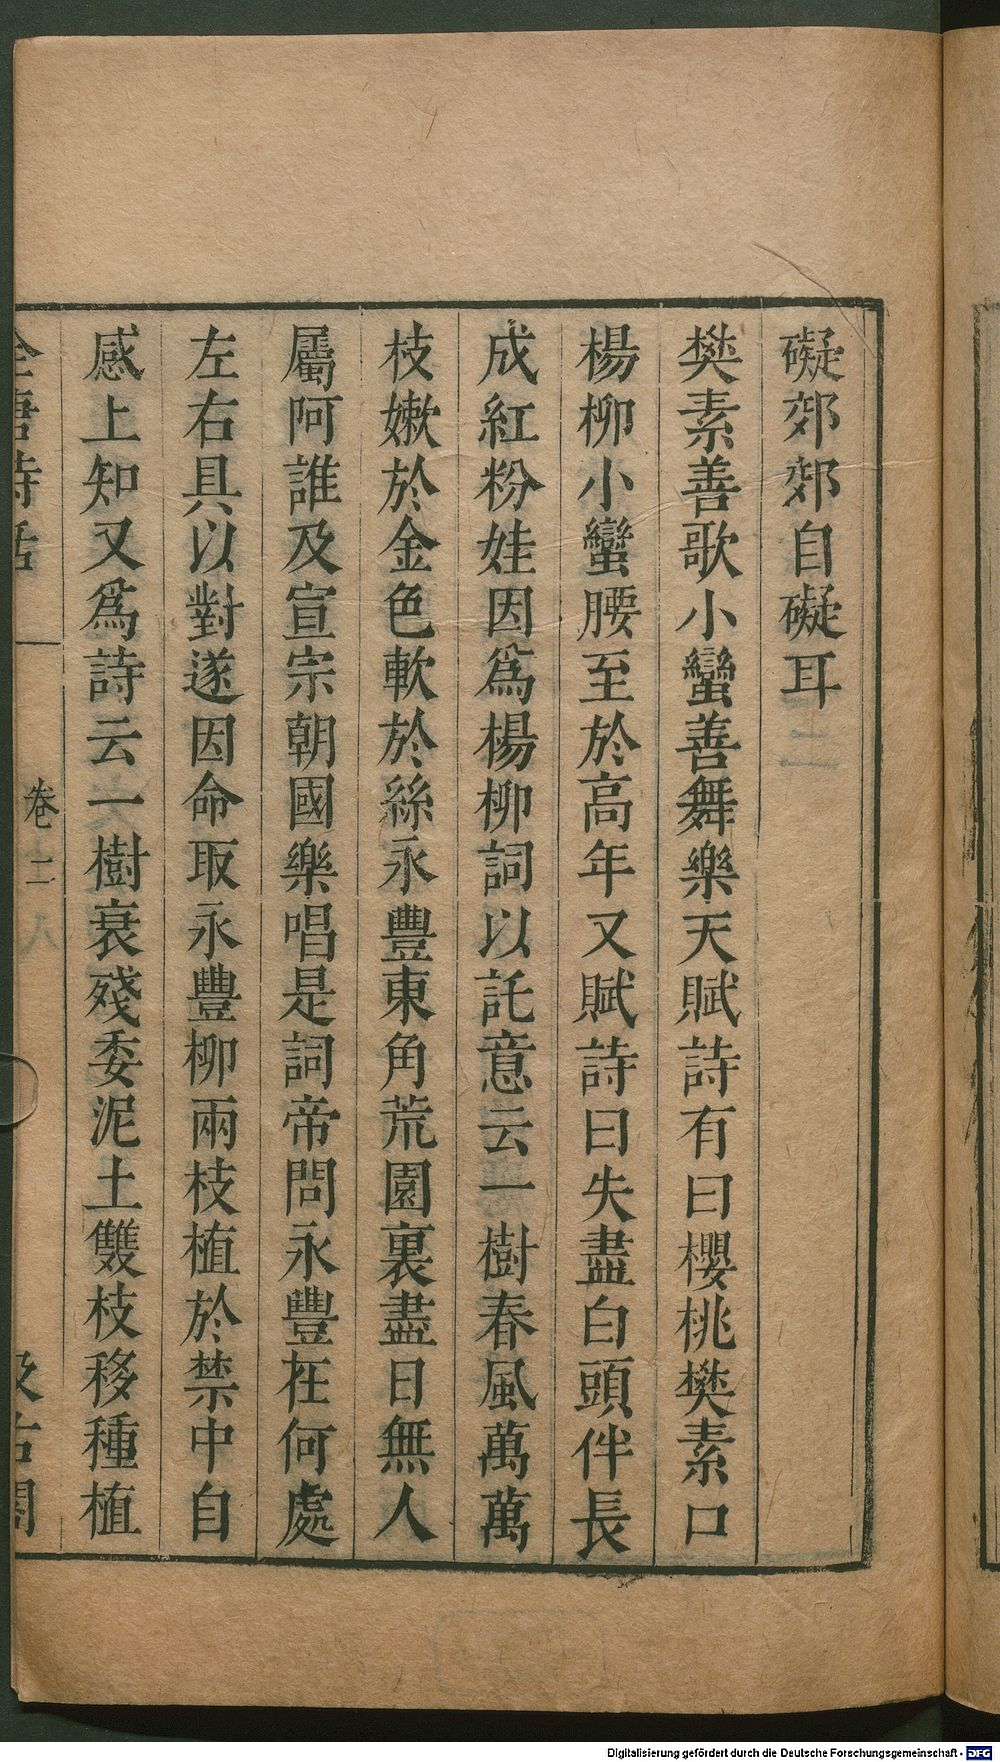 礙郊郊自礙耳
樊素善歌小蠻善舞樂天賦詩有曰櫻桃樊素口
楊柳小蠻腰至於高年又賦詩曰失盡白頭伴長
成紅粉娃因爲楊柳詞以託意云一樹春風萬萬
枝嫰於金色軟於絲永豐東角荒園裏盡日無人
屬阿誰及宣宗朝國樂唱是詞帝問永豐在何處
左右具以對遂因命取永豐柳兩枝植於禁中自
感上知又爲詩云一樹衰殘委泥土雙枝移種植
全唐詩話
卷二
八
汲古閣
Digitalisierung gefördert durch die Deutsche Forschungsgemeinschaft - DFG